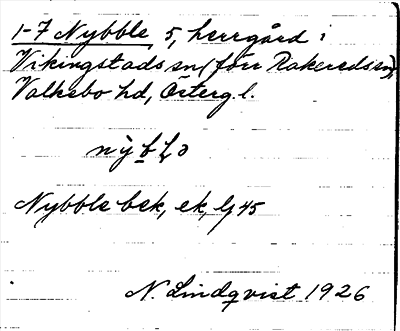 1-7 Nybble, 5, herrgård i
Vikingstads sn (förr Rakereds sn),
Valkebo hd, Östergl.
Nybble bek, ek, lj 45
N. Lindqvist 1926